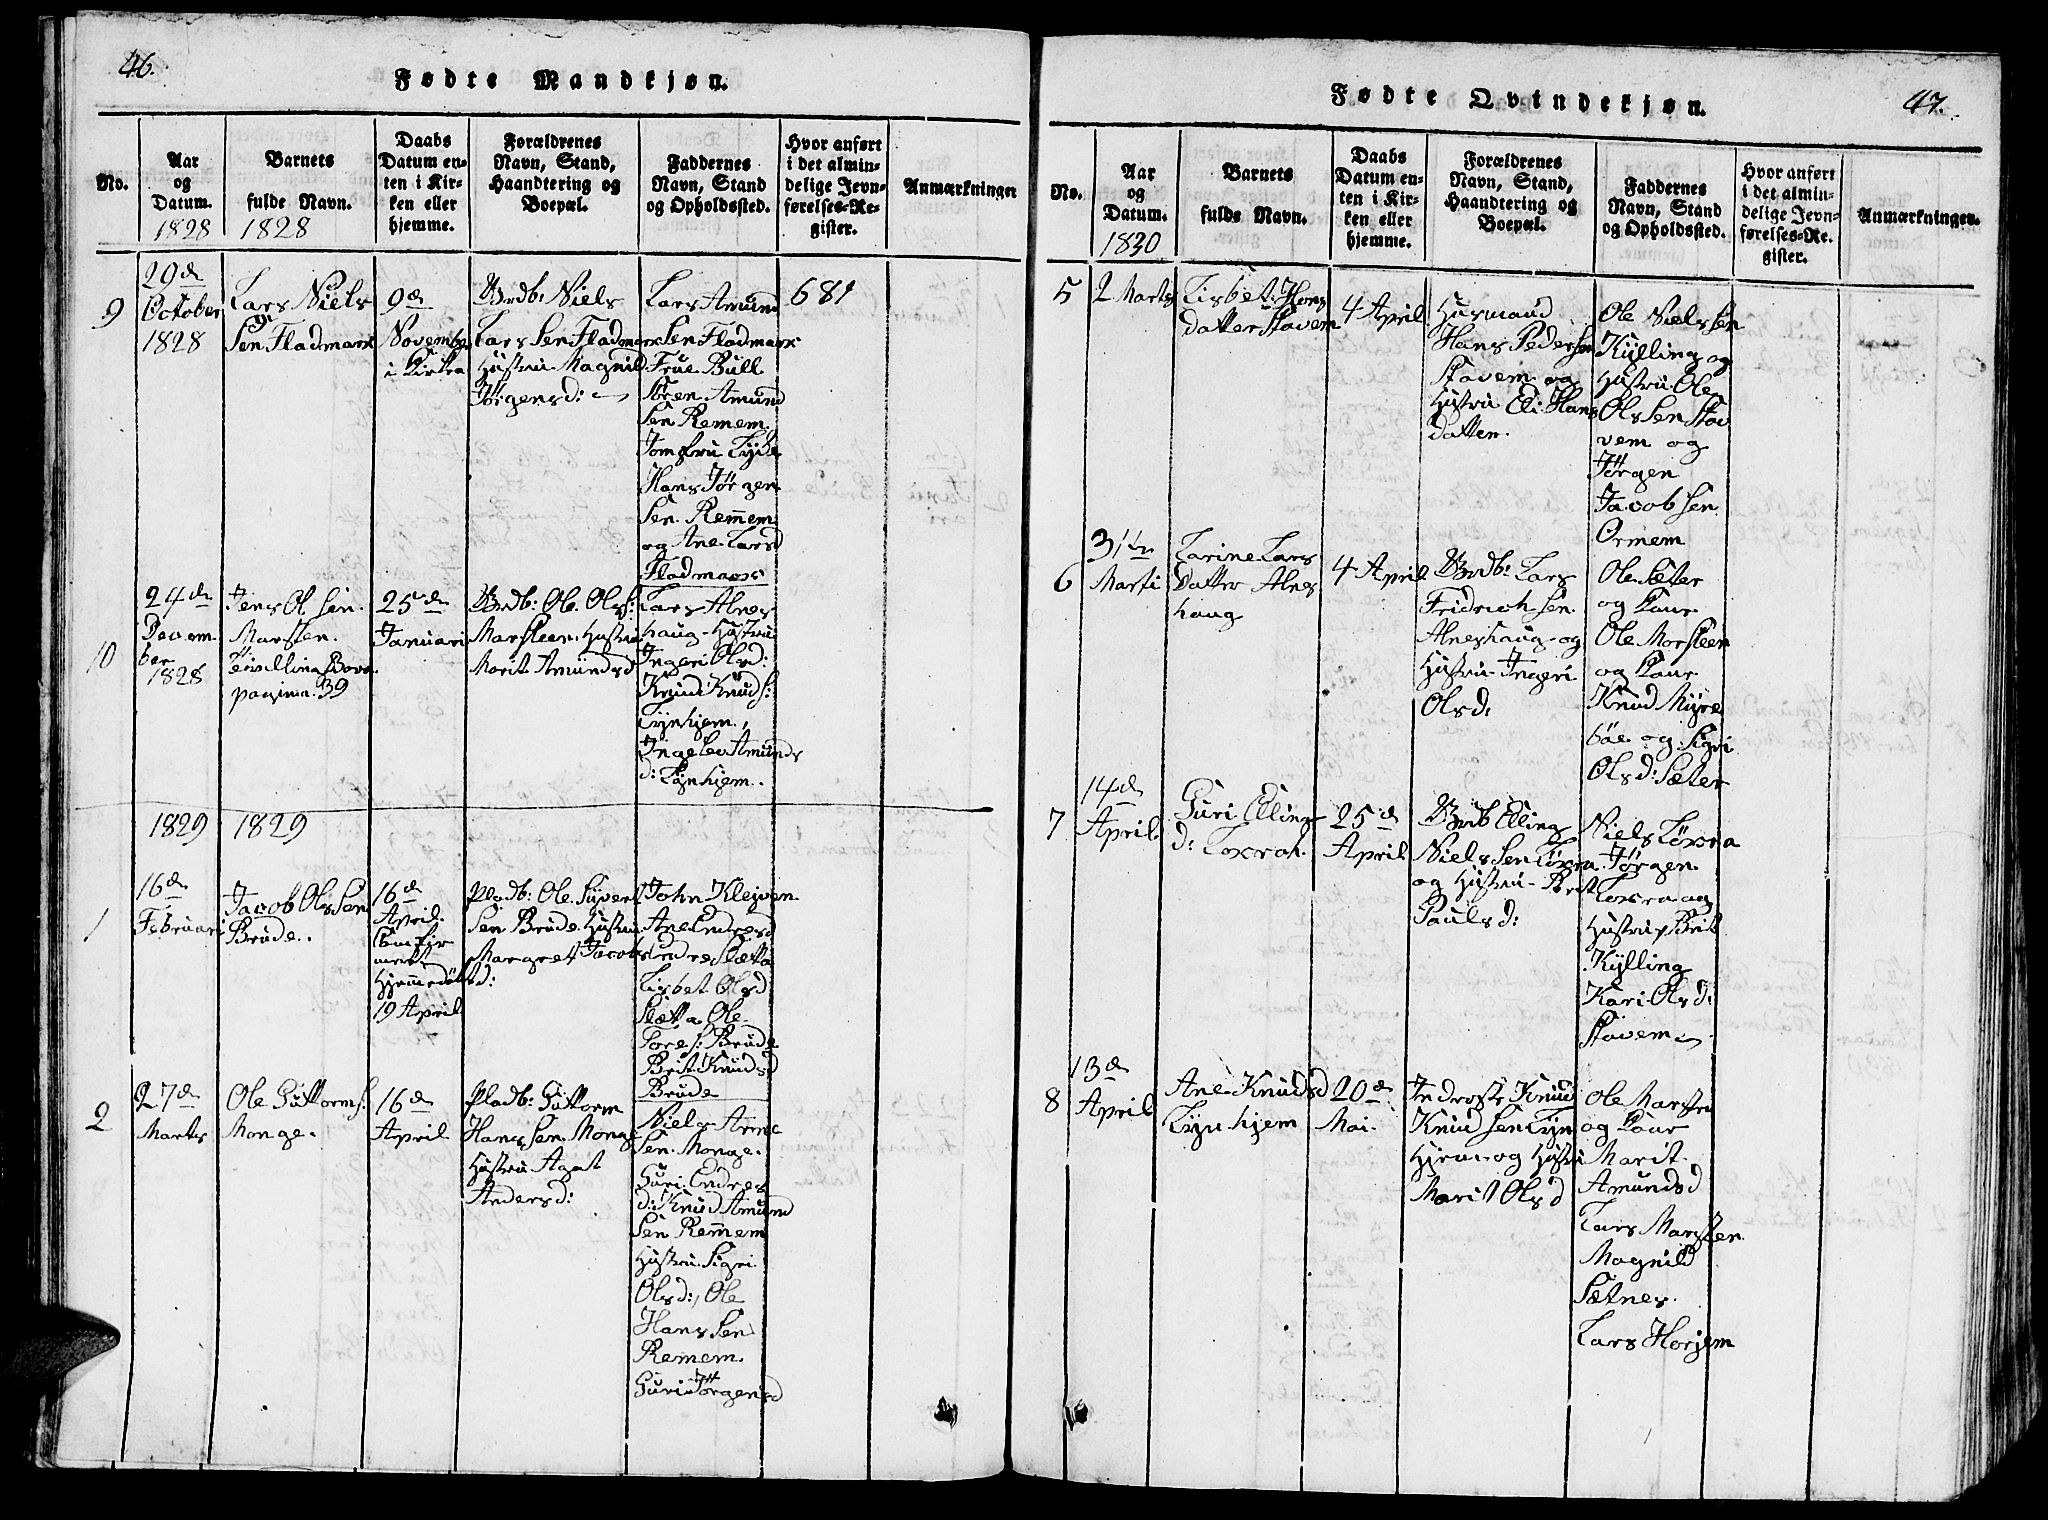 46.
Fødte Mandkjøn.
No.
Aar
og
Datum.
1828
Barnets
fulde Navn.
1828
Daabs
Datum en-
ten i Kir-
ken eller
hjemme.
Forældrenes
Navn, Stand,
Haandtering og
Boepæl.
Faddernes
Navn, Stand
og Opholdssted.
Hvor anført
i det almin-
delige Jevn-
førelses-Re-
gister.
Anmærkninger
9
29de
October
1828
Lars Niels
Sen Fladmark
9de
November
i Kirken
Brdb: Niels
Lars Sen Fladmark
Hustru Magnild
Jørgensd:
Lars Amund
Sen Fladmark
Frue Bull
Søren Amund
Sen Remem.
Jomfru Lyde
Hans Jørgen
Sen. Remem
og Ane Larsd
Fladmark
681
10
24de
Decem
ber
1828
Jens Ol Sen
Marsten.
Tvilling Born
pagina. 39
25de
Januari
Brdb: Ole Ols:
Marsteen. Hustru
Marit Amundsd
Lars Alnes
haug Hustru
Ingeri Olsd:
Knud Knuds:
Lynhjem.
Ingelev Amunds
d: Lynhjem.
1829
1829
1
16de
Februari
Jacob Ols Sen
Brude.
16de
April.
Comfir
mert
Hjemmedøbt
19 April
Pladb: Ole Siver
Sen Brude. Hustru
Margret Jacobs
d:
John Klejven
Ane Endresd
Endre Sletta
Lisbet Olsd
Sletta Ole
Tores: Brude
Brit Knudsd
Brude
2
27de
Marts
Ole Guttorms:
Monge.
16de
April
Pladb: Guttorm
Hans Sen Monge
Hustru Agat
Andersd:
Niels Arne
Sen. Monge.
Guri. Endres
d: Knud Amund
Sen Remmem
Hustru. Sigri
Olsd:, Ole
Hans Sen
Remem.
Guri Jørgensd
47.
Fødte Qvindekjøn.
No.
Aar
og
Datum.
1830
Barnets
fulde Navn.
Daabs
Datum en-
ten i Kir-
ken eller
hjemme.
Forældrenes
Navn, Stand,
Haandtering og
Boepæl.
Faddernes
Navn, Stand
og Opholdssted.
Hvor anført
i det almin-
delige Jevn-
førelses-Re-
gister.
Anmærkninger.
5
2 Marts
Lisbet: Hans
datter Stavem
4 April
Husmand
Hans Peder Sen
Stavem og
Hustru Eli Hans
datter.
Ole Niels Sen
Kylling og
Hustru. Ole
Ols Sen Sta
vem og
Jørgen
Jacob Sen
Ormem
6
31te
Marti
Larine Lars
datter Alnes
haug
4 April
Brdb: Lars
Fridrich Sen.
Alneshaug og
Hustru Ingeri
Olsd:
Ole Sæter
og Kaur
Ole Marsteen
og Kaur
Knud Myre
bøe og Sigri
Olsd: Sæter
7
14de
April.
Guri Elling
d: Loxrah.
25de
April
Brdb Elling
Niels Sen Loxra
og Hustru Brit
Paulsd:
Niels Loxra
Jørgen
Loxra og
Hustru Brit
Kylling
Kari Olsd:
Stavem
8
13de
April
Ane Knudsd
Lynhjem
20de
Mai.
Inderste Knud
Knud Sen Lyn
hjem og Hustru
Marit Olsd
Ole Marsten
og Kaur
Marit
Amundsd
Lars Marsten
Magnild
Sætnes.
Lars Horjem